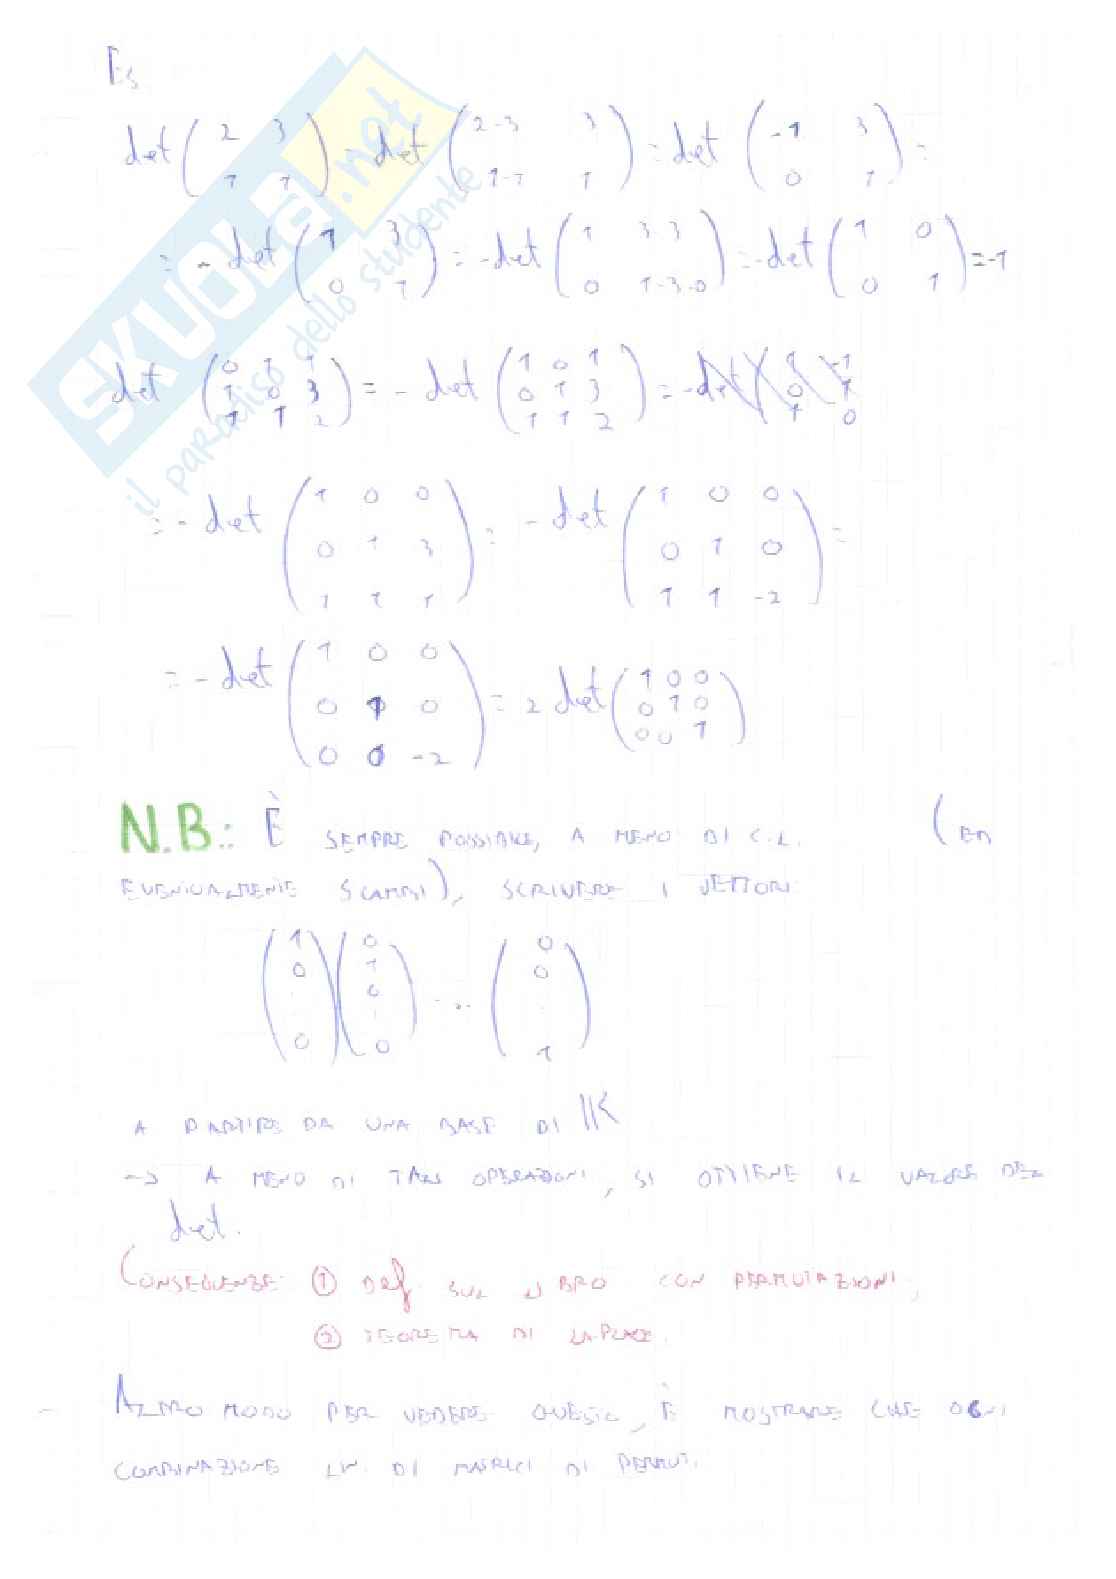 Es
det ( 2 3 ; 1 1 ) = det ( 2-3 3 ; 1-1 1 ) = det ( -1 3 ; 0 1 ) =
= - det ( 1 3 ; 0 1 ) = -det ( 1 3-3 ; 0 1-3·0 ) = -det ( 1 0 ; 0 1 ) = -1
det ( 0 1 1 ; 1 0 3 ; 1 1 2 ) = - det ( 1 0 1 ; 0 1 3 ; 1 1 2 ) = -det
= - det ( 1 0 0 ; 0 1 3 ; 1 1 1 ) = - det ( 1 0 0 ; 0 1 0 ; 1 1 -2 ) =
= - det ( 1 0 0 ; 0 1 0 ; 0 0 -2 ) = 2 det ( 1 0 0 ; 0 1 0 ; 0 0 1 )
N.B.: È SEMPRE POSSIBILE, A MENO DI C.L. (ED
EVENTUALMENTE SCAMBI), SCRIVERE I VETTORI
( 1 0 . . 0 ) ( 0 1 0 . 0 ) ... ( 0 0 . . 1 )
A PARTIRE DA UNA BASE DI K
-> A MENO DI TALI OPERAZIONI, SI OTTIENE IL VALORE DEL
det.
CONSEGUENZE: ① Def. SUL LIBRO CON PERMUTAZIONI;
② TEOREMA DI LAPLACE.
- ALTRO MODO PER VEDERE QUESTO, È MOSTRARE CHE OGNI
COMBINAZIONE LIN. DI MATRICI DI PERMUT.
SKUOLA.net
il paradiso dello studente